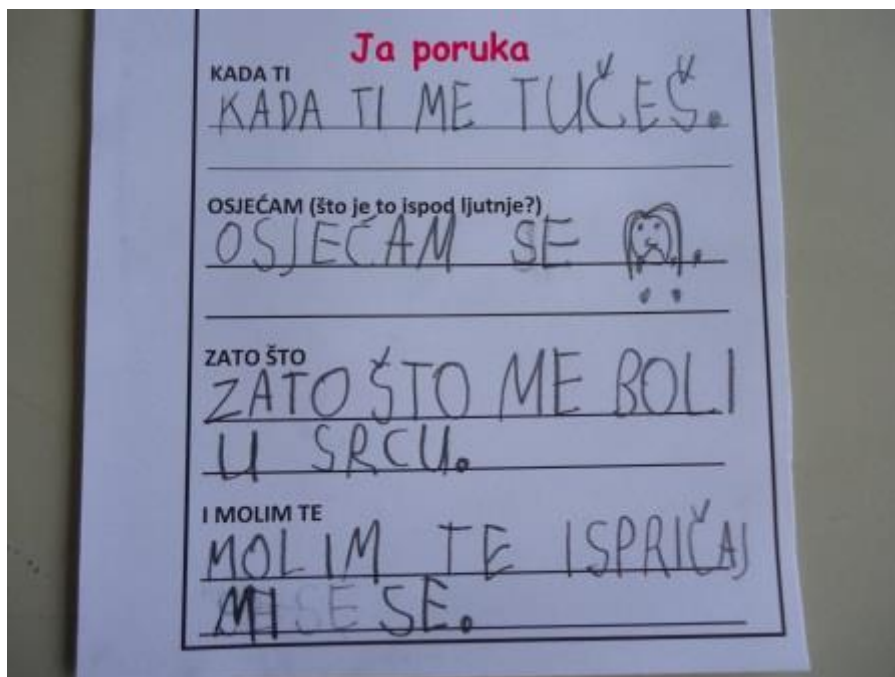 Ja poruka
KADA TI
KADA TI ME TUČEŠ.
OSJEĆAM (što je to ispod ljutnje?)
OSJEĆAM SE .
ZATO ŠTO
ZATO ŠTO ME BOLI
U SRCU.
I MOLIM TE
MOLIM TE ISPRIČAJ
MI SE.